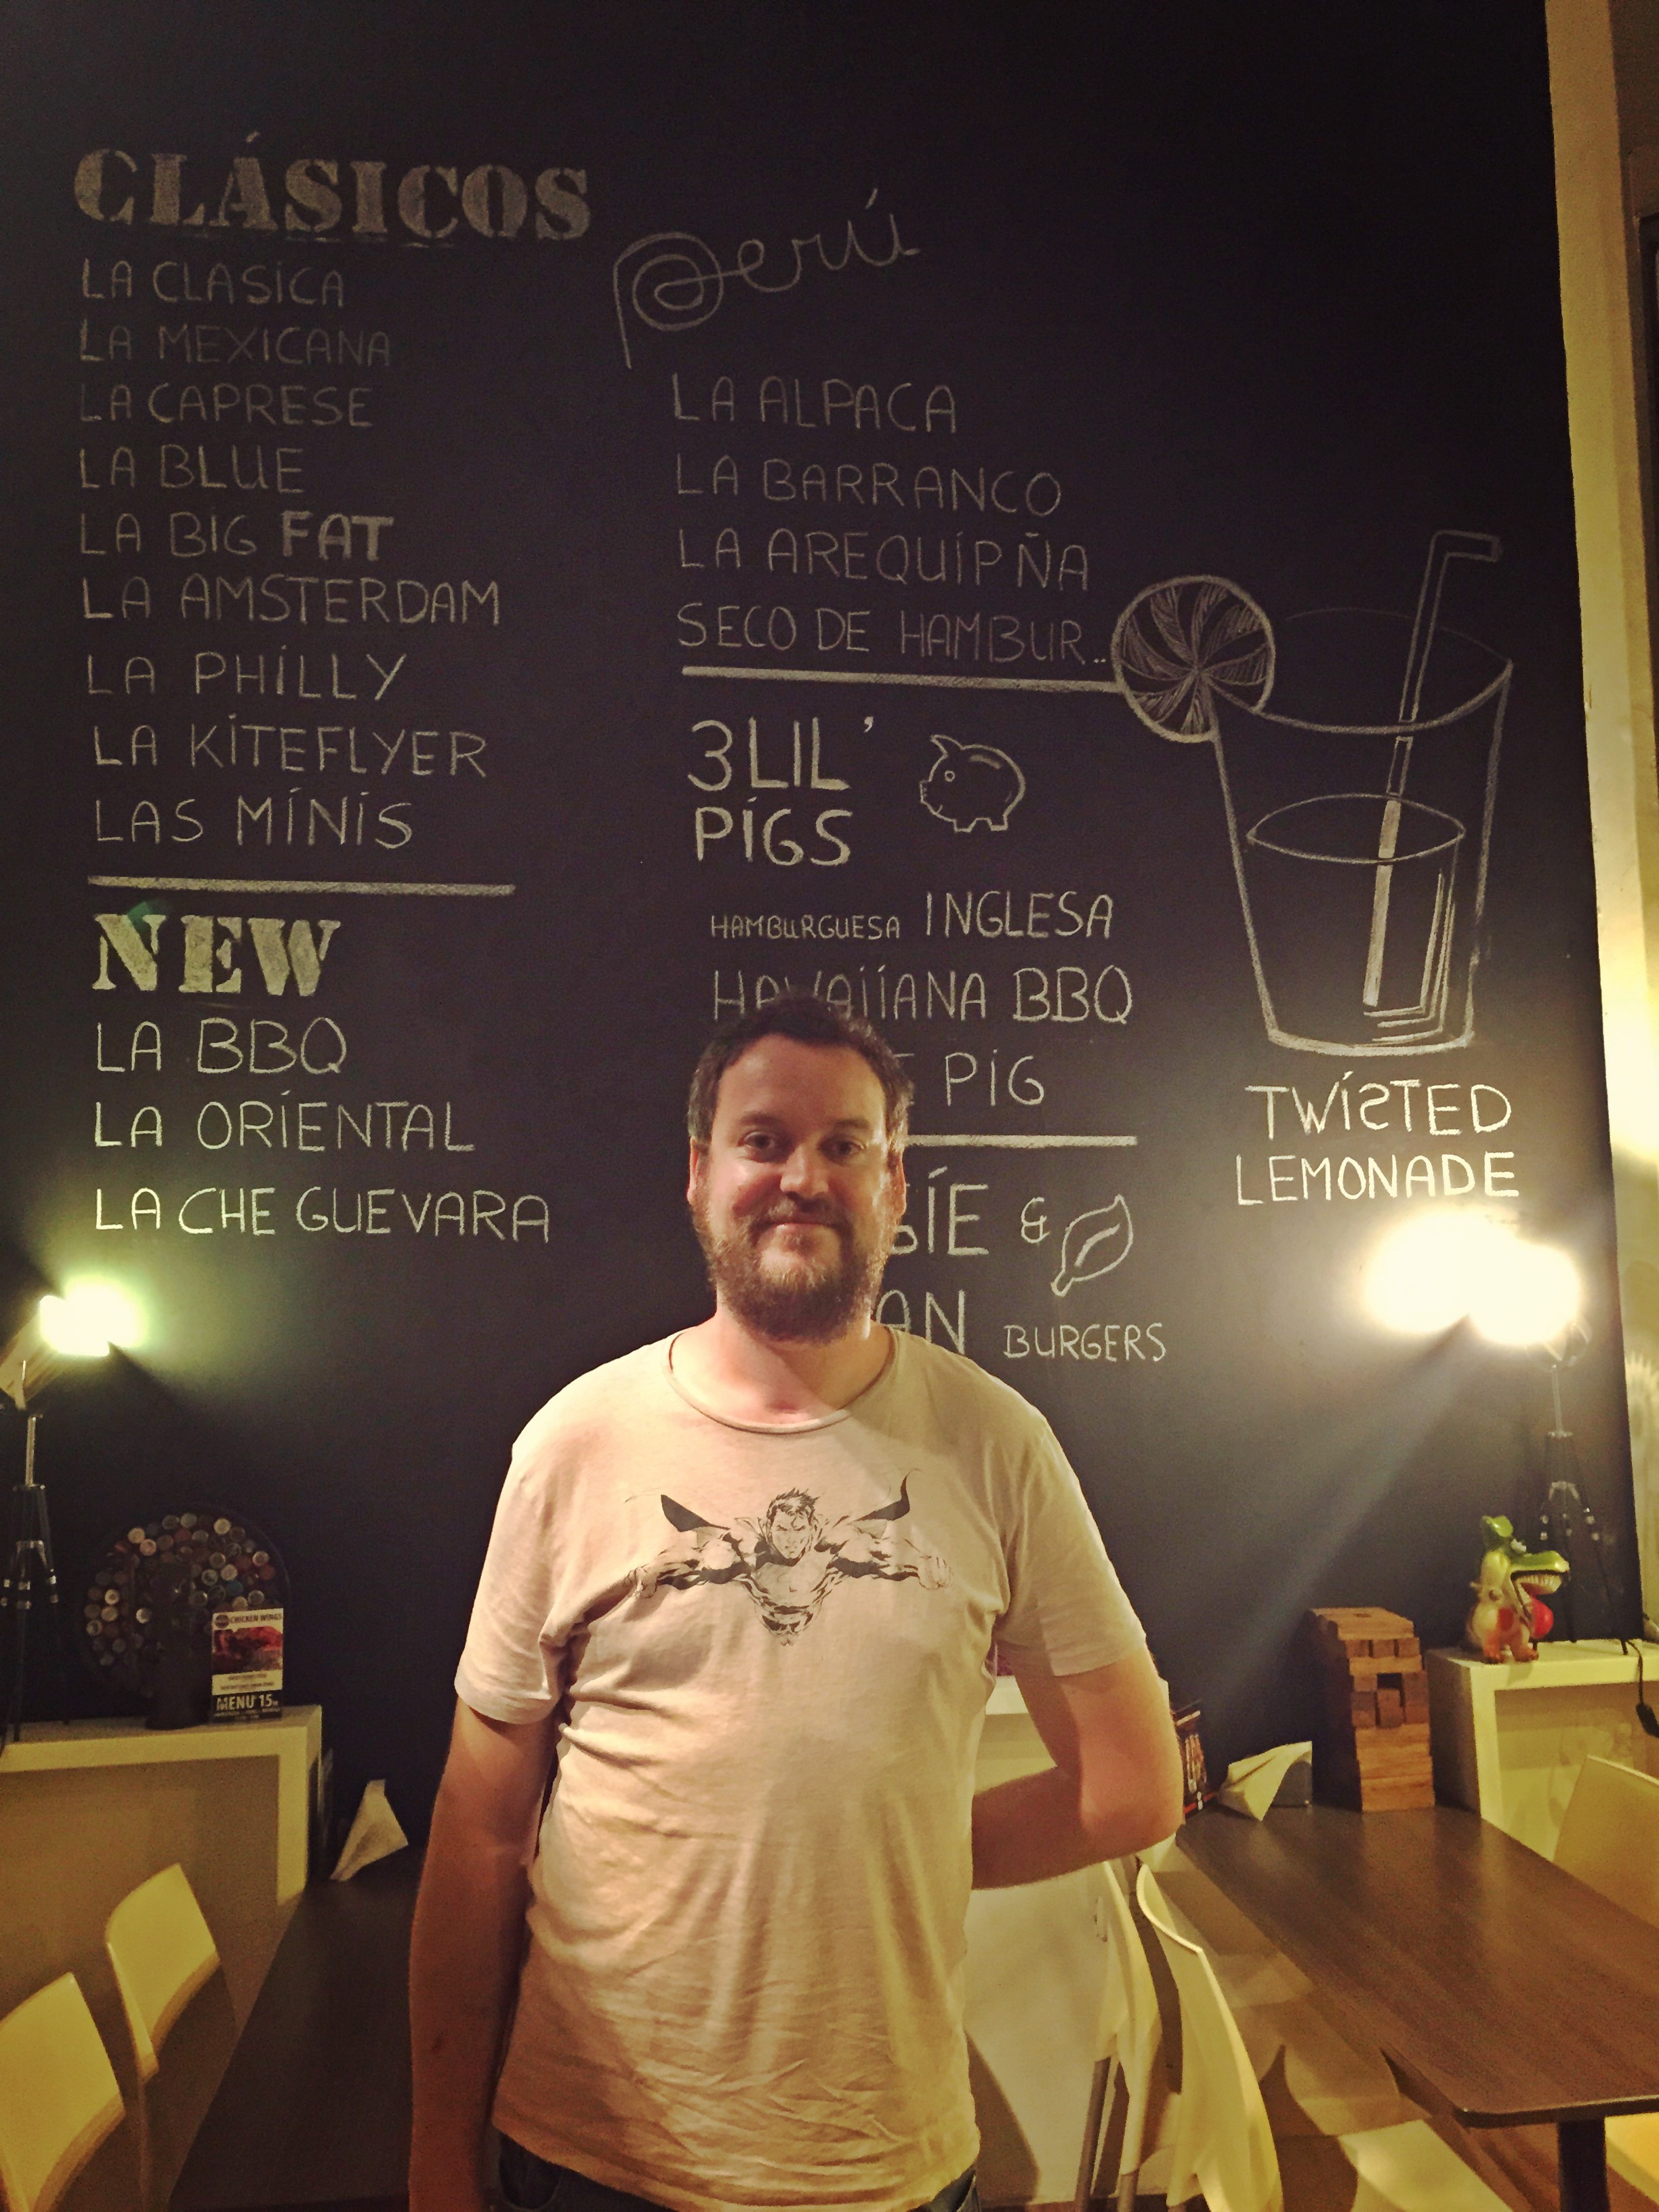 CLÁSICOS
LA CLASICA
LA MEXICANA
LA CAPRESE
LA BLUE
LA BIG FAT
LA AMSTERDAM
LA PHILLY
LA KITEFLYER
LAS MINIS
NEW
LA BBQ
LA ORIENTAL
LA CHE GUEVARA
Perú
LA ALPACA
LA BARRANCO
LA AREQUIPÑA
SECO DE HAMBUR..
3 LIL'
PIGS
HAMBURGUESA INGLESA
HAWAIIANA BBQ
PIG
GIE &
AN BURGERS
TWISTED
LEMONADE
CHICKEN WINGS
MENU 15